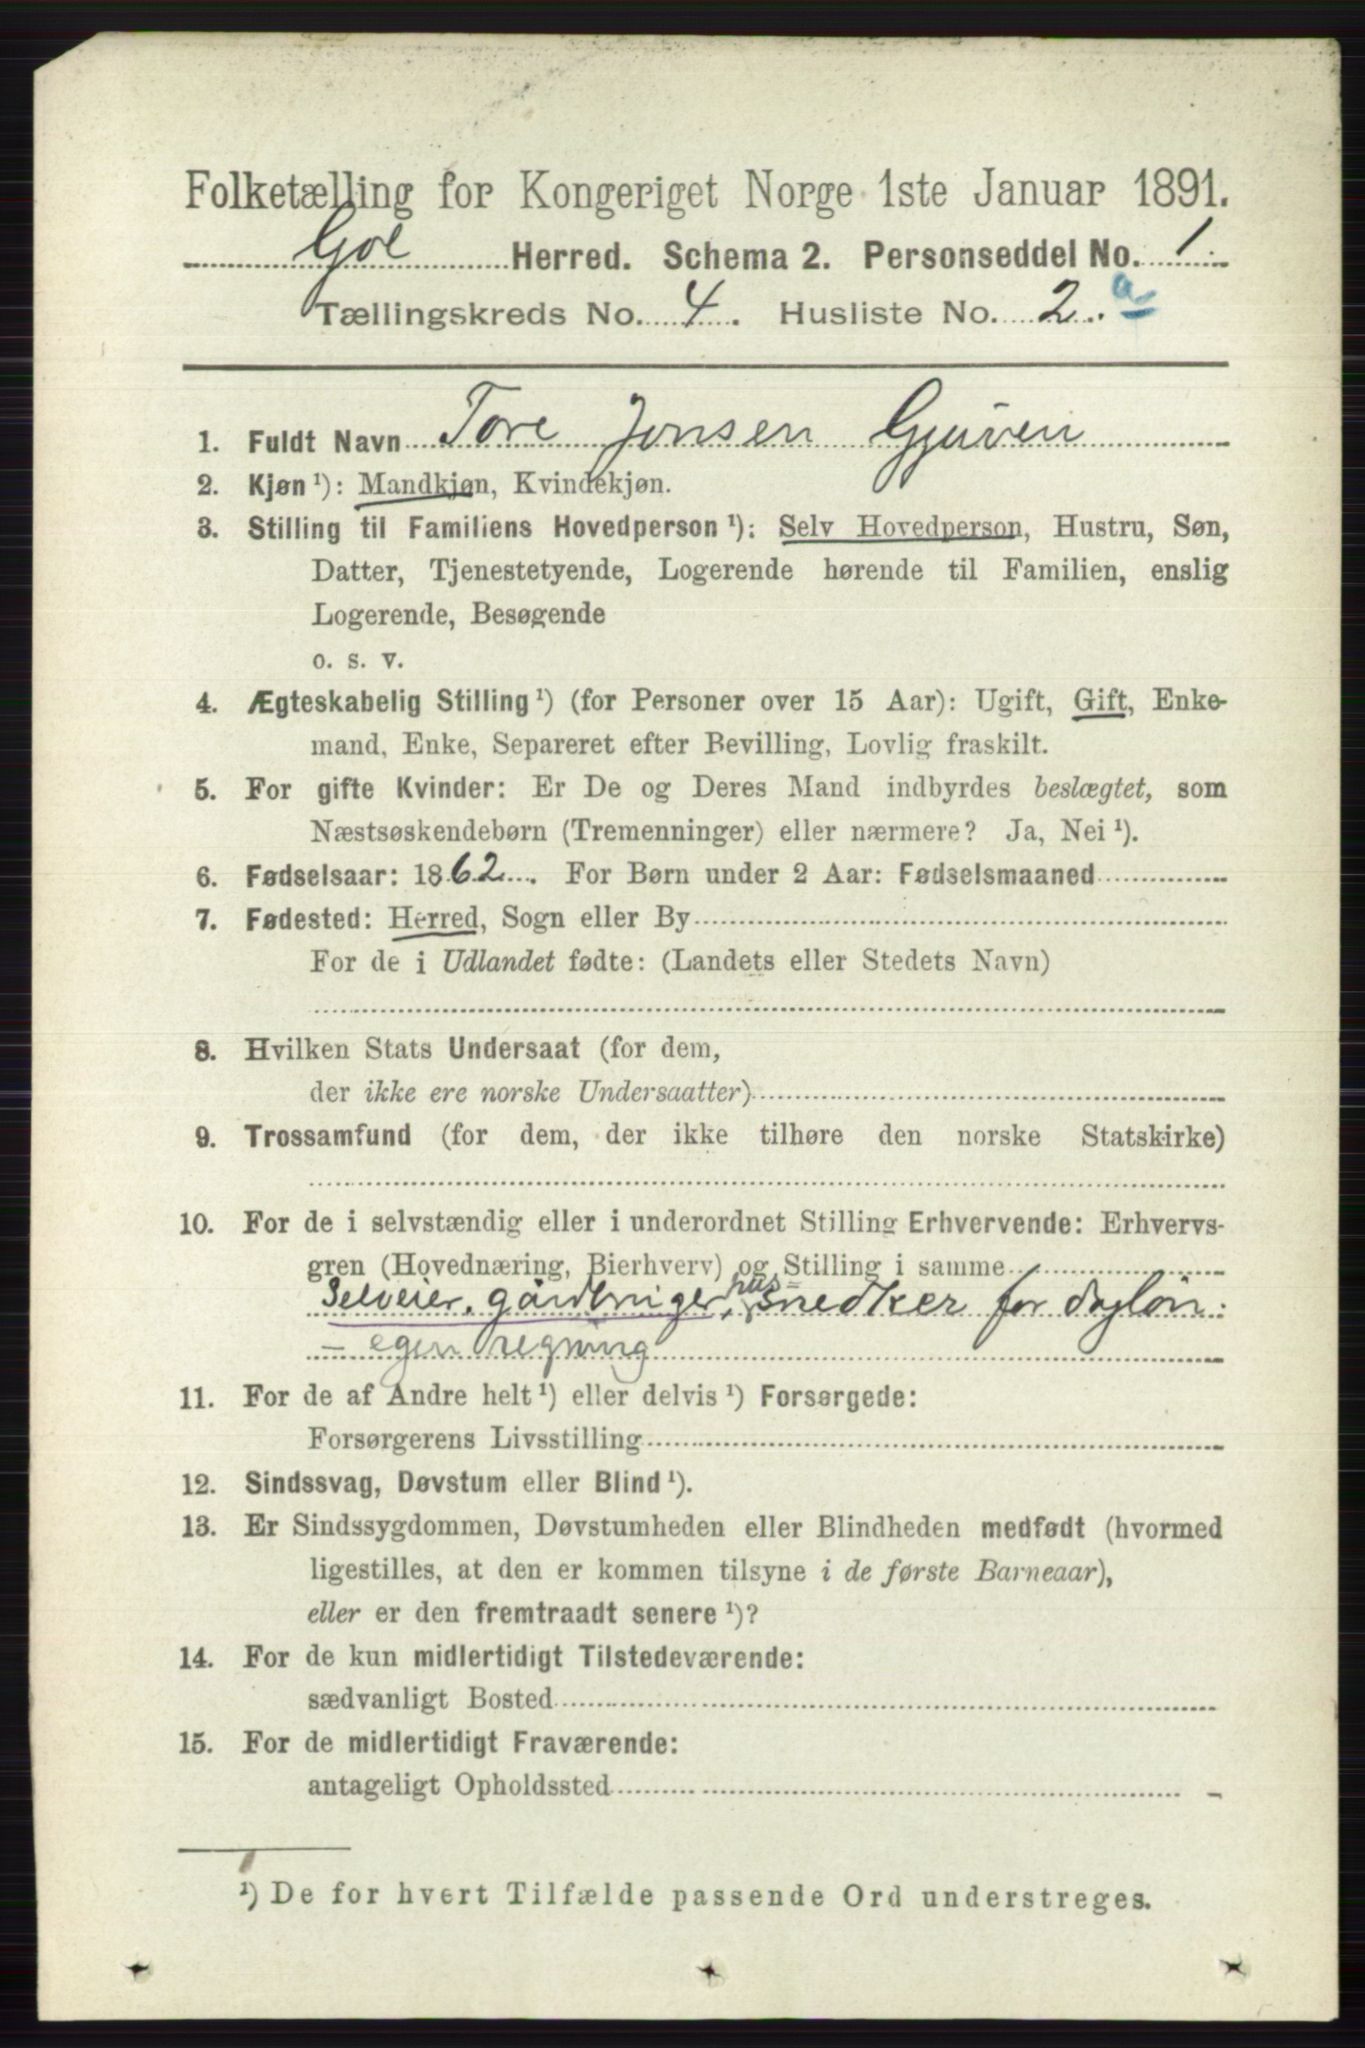 Folketælling for Kongeriget Norge 1ste Januar 1891.
Gol Herred. Schema 2. Personseddel No. 1.
Tællingskreds No. 4. Husliste No. 2.a
1. Fuldt Navn Tore Jonsen Gjuven
2. Kjøn ¹): Mandkjøn, Kvindekjøn.
3. Stilling til Familiens Hovedperson ¹): Selv Hovedperson, Hustru, Søn,
Datter, Tjenestetyende, Logerende hørende til Familien, enslig
Logerende, Besøgende
o. s. v.
4. Ægteskabelig Stilling ¹) (for Personer over 15 Aar): Ugift, Gift, Enke-
mand, Enke, Separeret efter Bevilling, Lovlig fraskilt.
5. For gifte Kvinder: Er De og Deres Mand indbyrdes beslægtet, som
Næstsøskendebørn (Tremenninger) eller nærmere? Ja, Nei ¹).
6. Fødselsaar: 1862. For Børn under 2 Aar: Fødselsmaaned
7. Fødested: Herred, Sogn eller By
For de i Udlandet fødte: (Landets eller Stedets Navn)
8. Hvilken Stats Undersaat (for dem,
der ikke ere norske Undersaatter)
9. Trossamfund (for dem, der ikke tilhøre den norske Statskirke)
10. For de i selvstændig eller i underordnet Stilling Erhvervende: Erhvervs-
gren (Hovednæring, Bierhverv) og Stilling i samme
Selveier, gårdbruger, hus=snedker for dagløn.
– egen regning
11. For de af Andre helt ¹) eller delvis ¹) Forsørgede:
Forsørgerens Livsstilling
12. Sindssvag, Døvstum eller Blind ¹).
13. Er Sindssygdommen, Døvstumheden eller Blindheden medfødt (hvormed
ligestilles, at den er kommen tilsyne i de første Barneaar),
eller er den fremtraadt senere ¹)?
14. For de kun midlertidigt Tilstedeværende:
sædvanligt Bosted
15. For de midlertidigt Fraværende:
antageligt Opholdssted
¹) De for hvert Tilfælde passende Ord understreges.